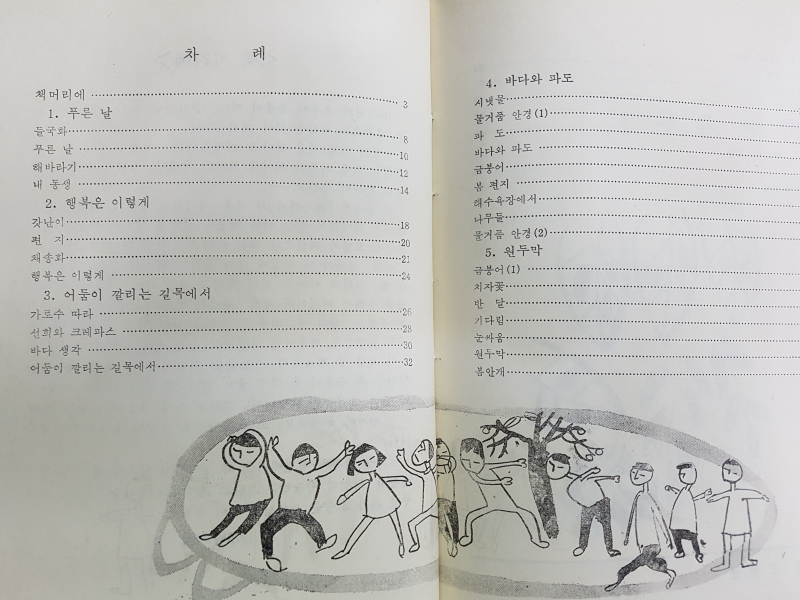 차 례
책머리에 3
1. 푸른 날
들국화 8
푸른 날 10
해바라기 12
내 동생 14
2. 행복은 이렇게
갓난이 18
편 지 20
채송화 21
행복은 이렇게 24
3. 어둠이 깔리는 길목에서
가로수 따라 26
선희와 크레파스 28
바다 생각 30
어둠이 깔리는 길목에서 32
4. 바다와 파도
시냇물
물거품 안경(1)
파 도
바다와 파도
금붕어
봄 편지
해수욕장에서
나무들
물거품 안경(2)
5. 원두막
금붕어(1)
치자꽃
반 달
기다림
눈싸움
원두막
봄안개